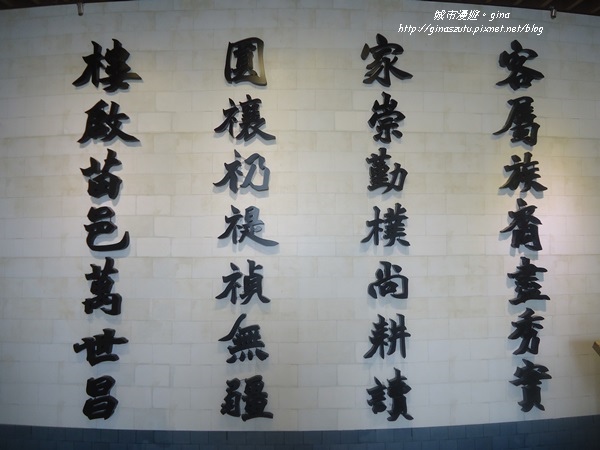 城市漫遊。gina
http://ginaszutu.pixnet.net/blog
客屬族裔盡秀實
家崇勤樸尚耕讀
圓禳礽禔禎無疆
樓啟苗邑萬世昌